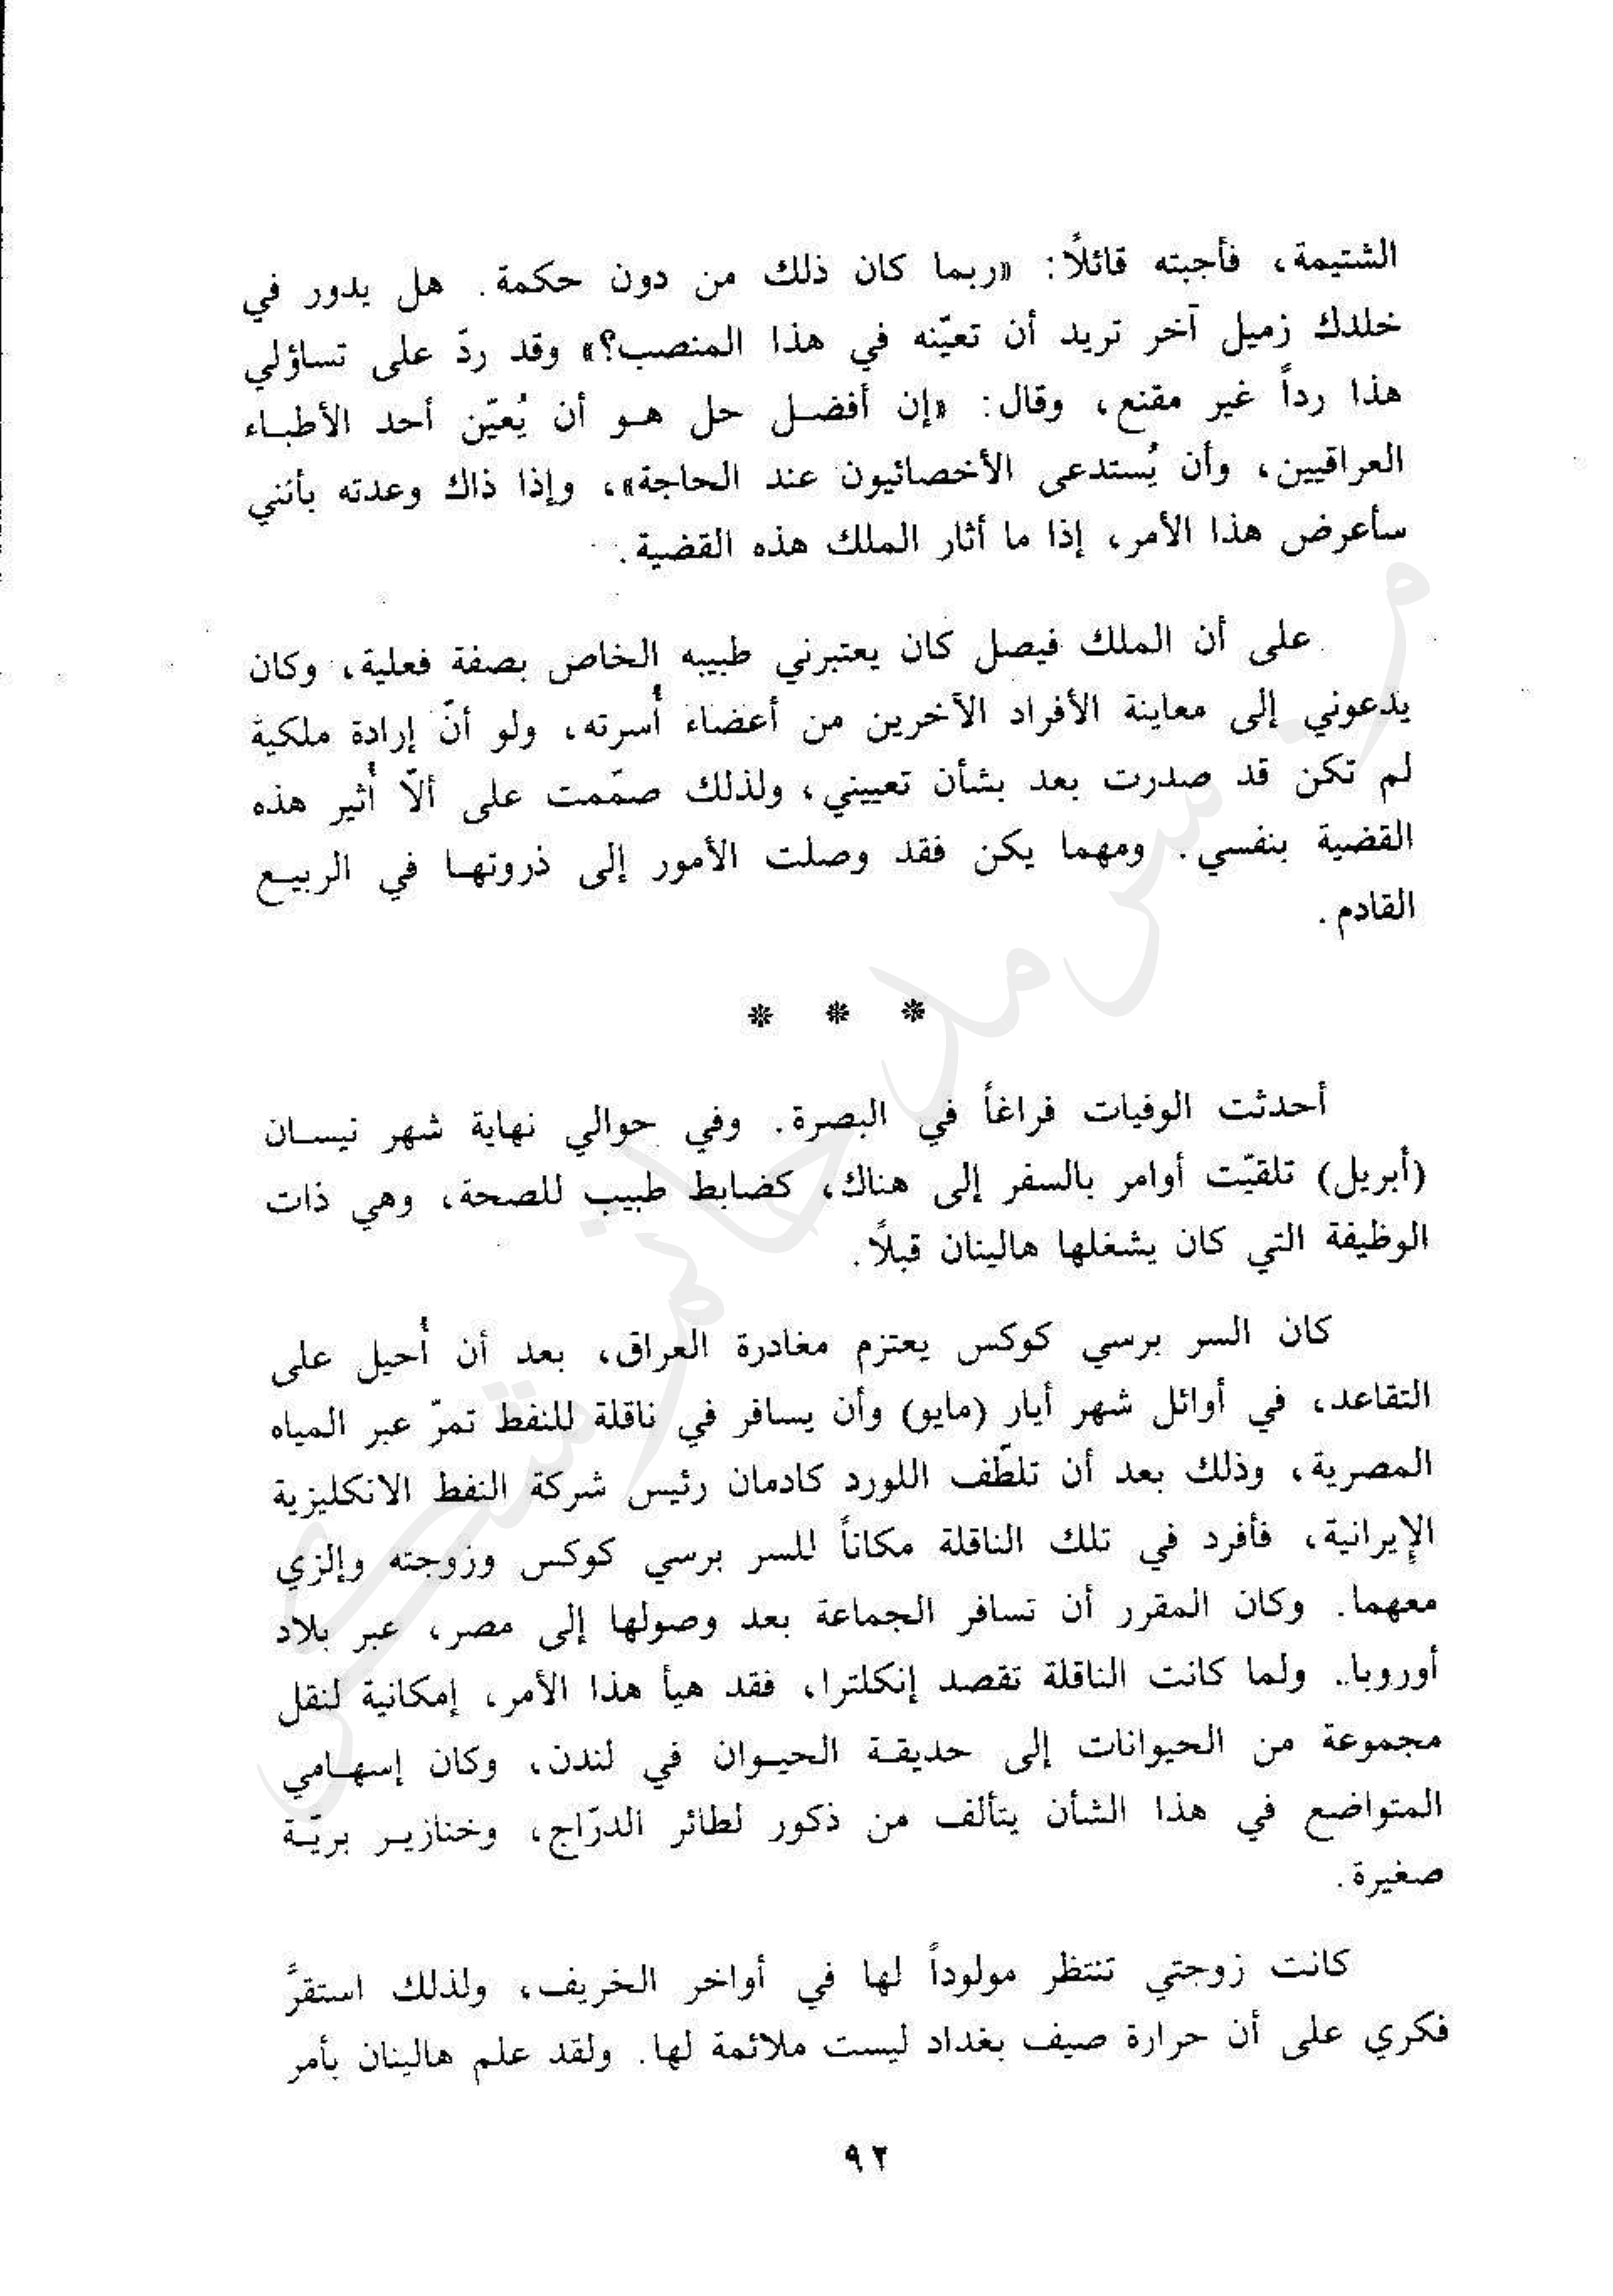 الشتيمة، فأجبته قائلاً: «ربما كان ذلك من دون حكمة. هل يدور في
خلدك زميل آخر تريد أن تعيّنه في هذا المنصب؟» وقد ردّ على تساؤلي
هذا رداً غير مقنع، وقال: «إن أفضل حل هو أن يُعيّن أحد الأطباء
العراقيين، وأن يُستدعى الأخصائيون عند الحاجة»، وإذا ذاك وعدته بأنني
سأعرض هذا الأمر، إذا ما أثار الملك هذه القضية.
على أن الملك فيصل كان يعتبرني طبيبه الخاص بصفة فعلية، وكان
يدعوني إلى معاينة الأفراد الآخرين من أعضاء أُسرته، ولو أنّ إرادة ملكية
لم تكن قد صدرت بعد بشأن تعييني، ولذلك صمّمت على ألاّ أُثير هذه
القضية بنفسي. ومهما يكن فقد وصلت الأمور إلى ذروتها في الربيع
القادم.
* * *
أحدثت الوفيات فراغاً في البصرة. وفي حوالي نهاية شهر نيسان
(أبريل) تلقيّت أوامر بالسفر إلى هناك، كضابط طبيب للصحة، وهي ذات
الوظيفة التي كان يشغلها هالينان قبلاً.
كان السر برسي كوكس يعتزم مغادرة العراق، بعد أن أُحيل على
التقاعد، في أوائل شهر أيار (مايو) وأن يسافر في ناقلة للنفط تمرّ عبر المياه
المصرية، وذلك بعد أن تلطّف اللورد كادمان رئيس شركة النفط الانكليزية
الإيرانية، فأفرد في تلك الناقلة مكاناً للسر برسي كوكس وزوجته وإلزي
معهما. وكان المقرر أن تسافر الجماعة بعد وصولها إلى مصر، عبر بلاد
أوروبا. ولما كانت الناقلة تقصد إنكلترا، فقد هيأ هذا الأمر، إمكانية لنقل
مجموعة من الحيوانات إلى حديقة الحيوان في لندن، وكان إسهامي
المتواضع في هذا الشأن يتألف من ذكور لطائر الدرّاج، وخنازير بريّة
صغيرة.
كانت زوجتي تنتظر مولوداً لها في أواخر الخريف، ولذلك استقرَّ
فكري على أن حرارة صيف بغداد ليست ملائمة لها. ولقد علم هالينان بأمر
٩٢